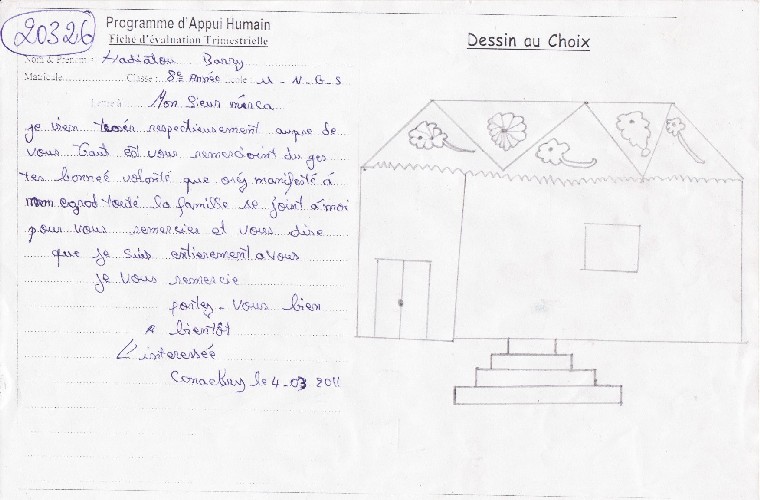 20326
Programme d'Appui Humain
Fiche d'évaluation Trimestrielle
Dessin au Choix
Nom & Prénom : Hadiatou Barry
Matricule Classe : 8e Année Ecole U - N - G - S
Lettre à Mon Sieur marca
je vien respectieusement aupre de
vous Tant est vous remercioint du ges
tes bonneé volonté que manifesté à
mon egrod touté la famille se joint à moi
pour vous remercier et vous dire
que je suis entierement a vous
je vous remercie
portez - vous bien
A bientôt
L'interessée
Conackry le 4 - 03 2011